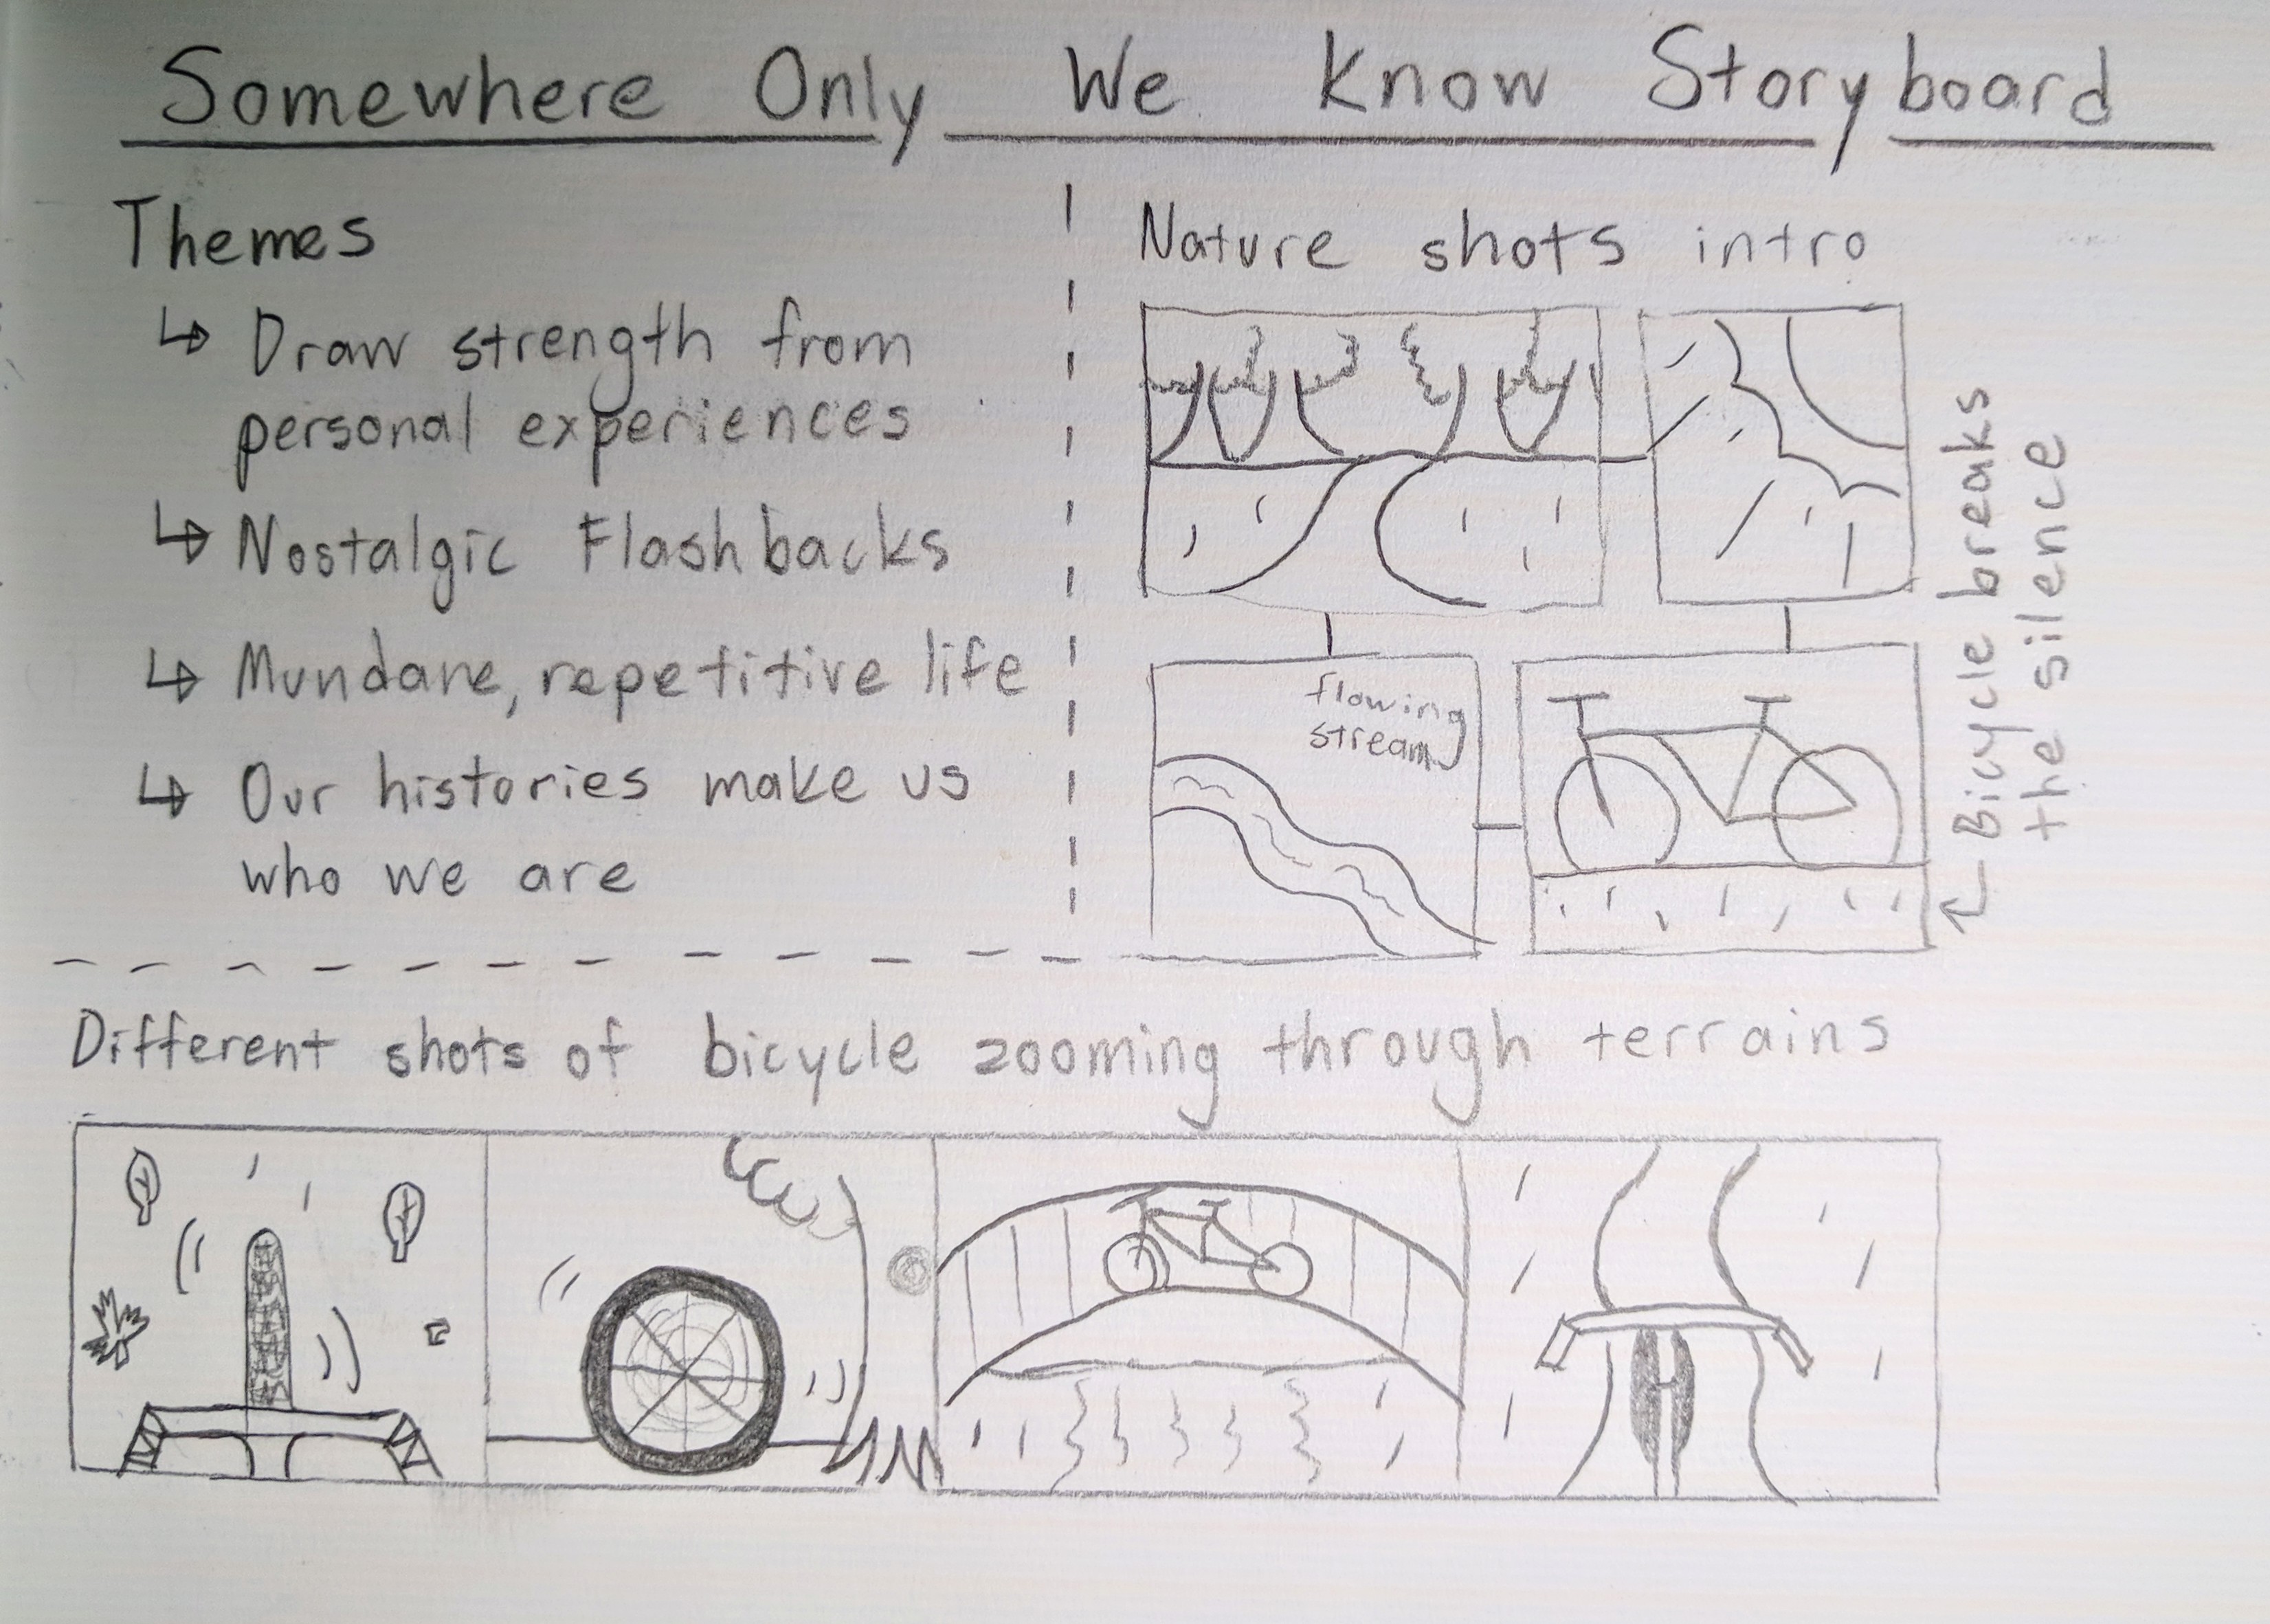 Somewhere Only We Know Storyboard
Themes
↳ Draw strength from
personal experiences
↳ Nostalgic Flashbacks
↳ Mundane, repetitive life
↳ Our histories make us
who we are
Nature shots intro
flowing
stream
Bicycle breaks
the silence
Different shots of bicycle zooming through terrains